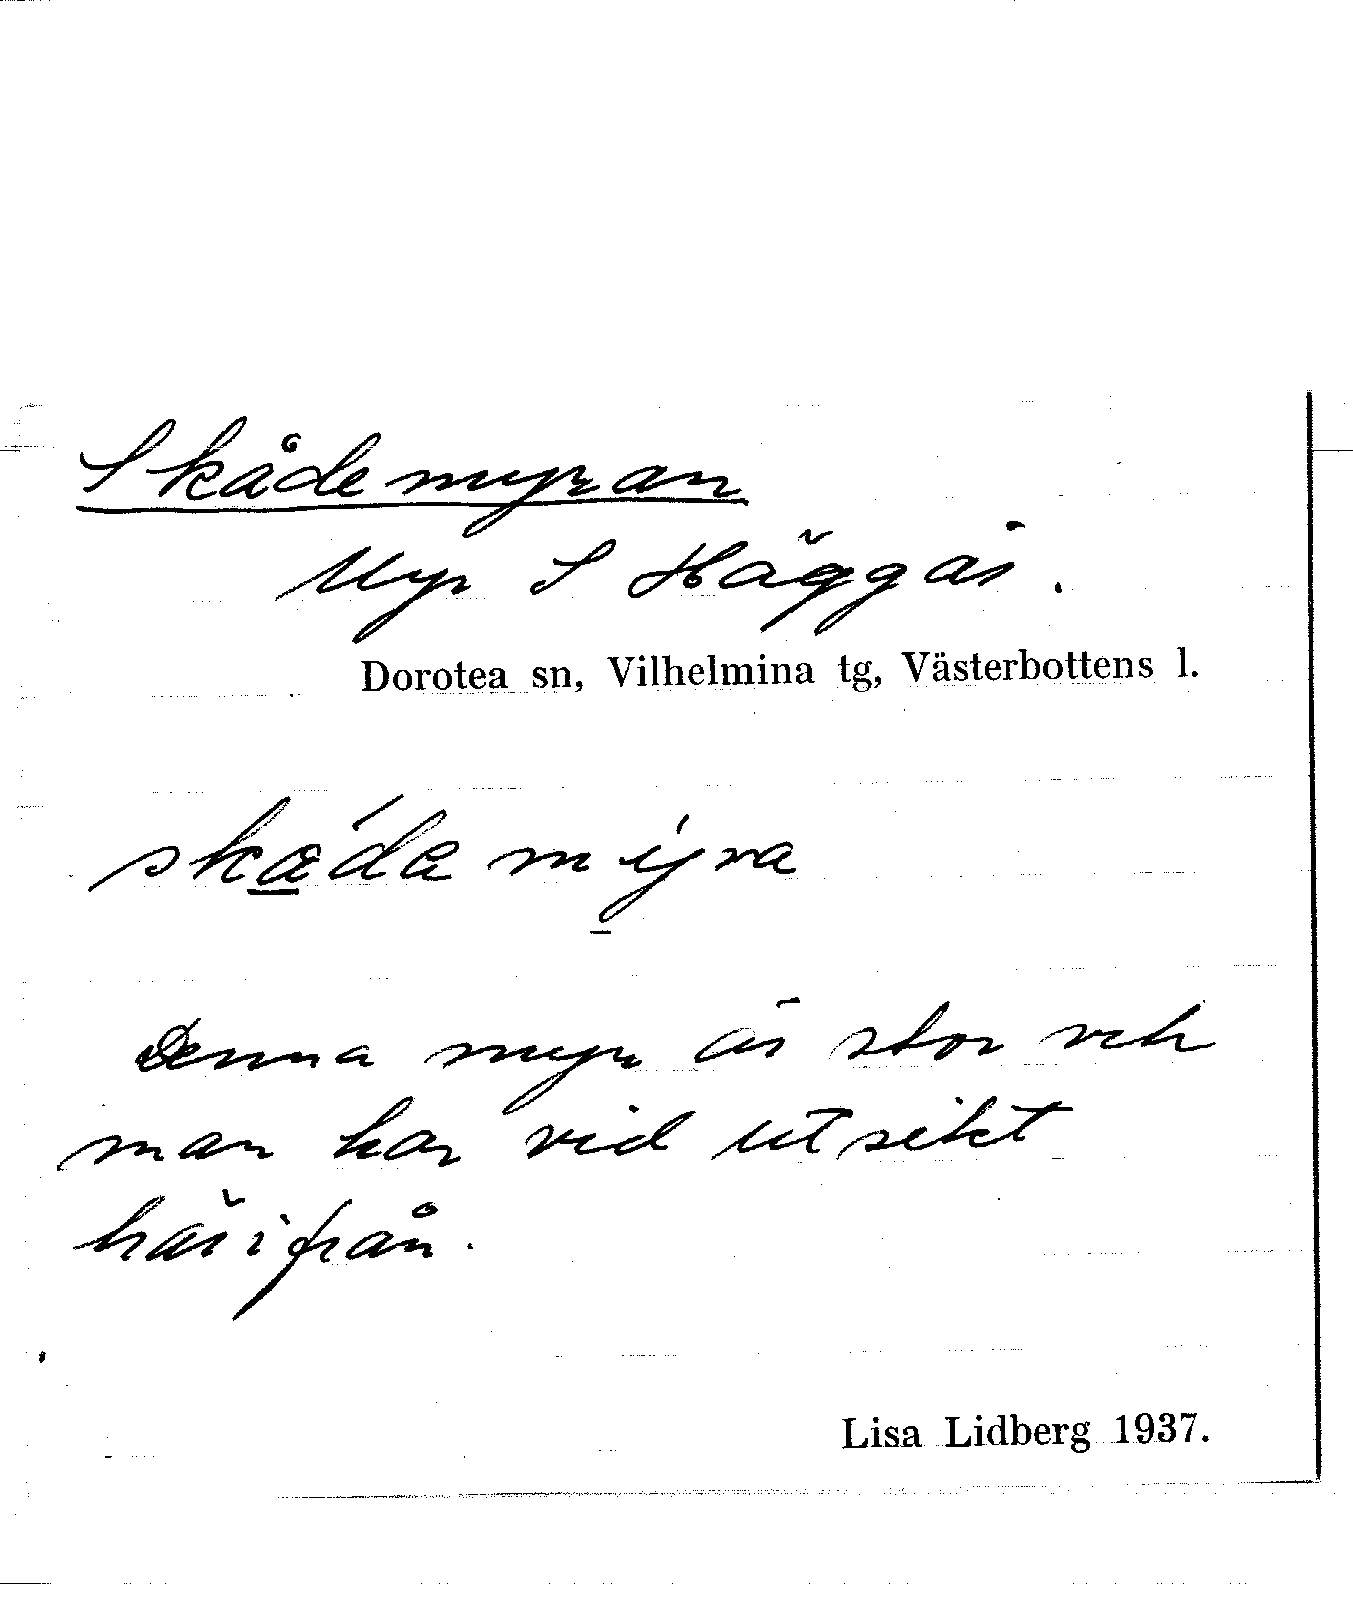 Skådemyran
Myr S Häggås.
Dorotea sn, Vilhelmina tg, Västerbottens l.
Denna myr är stor och
man har vid utsikt
härifrån.
Lisa Lidberg 1937.